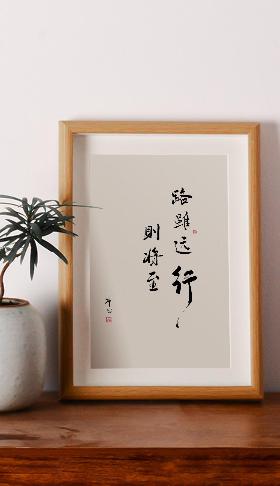 路雖远行
則將至